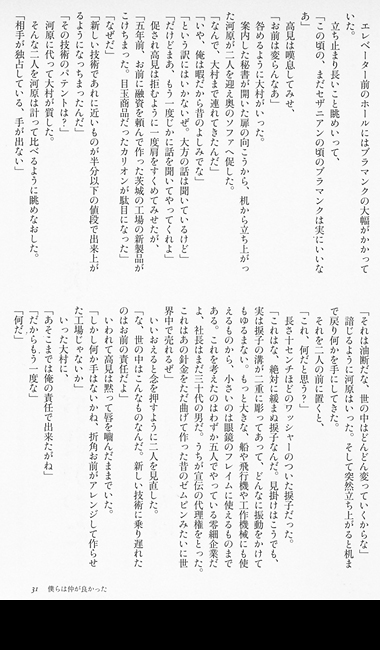 エレベーター前のホールにはブラマンクの大幅がかかって
いた。
立ち止まり長いこと眺めいって、
「この頃の、まだセザニアンの頃のブラマンクは実にいいな
あ」
高見は嘆息してみせ、
「お前は変らんなあ」
咎めるように大村がいった。
案内した秘書が開いた扉の向こうから、机から立ち上がっ
た河原が二人を迎え奥のソファへ促した。
「なんで、大村まで連れてきたんだ」
「いや、俺は暇だから昔のよしみでな」
「という訳にはいかないぜ。大方の話は聞いているけど」
「だけどまあ、もう一度じかに話を聞いてやってくれよ」
促され高見は拒むように一度肩をすくめてみせたが、
「五年前、お前に融資を頼んで作った茨城の工場の新製品が
こけちまった。目玉商品だったカリオンが駄目になった」
「なぜだ」
「新しい技術であれに近いものが半分以下の値段で出来上が
るようになっちまったんだ」
「その技術のパテントは？」
河原に代って大村が質した。
そんな二人を河原は計って比べるように眺めなおした。
「相手が独占している、手が出ない」
「それは油断だな、世の中はどんどん変っていくからな」
諳じるように河原はいった。そして突然立ち上がると机ま
で戻り何かを手にしてきた。
それを二人の前に置くと、
「これ、何だと思う？」
長さ十センチほどのワッシャーのついた捩子だった。
「これはな、絶対に緩まぬ捩子なんだ。見掛けはこうでも、
実は捩子の溝が二重に彫ってあって、どんなに振動をかけて
もゆるまない。もっと大きな、船や飛行機や工作機械にも使
えるものから、小さいのは眼鏡のフレイムに使えるものまで
ある。これを考えたのはわずか五人でやっている零細企業だ
よ、社長はまだ三十代の男だ。うちが宣伝の代理権をとった。
これはあの針金をただ曲げて作った昔のゼムピンみたいに世
界中で売れるぜ」
いいおえると念を押すように二人を見直した。
「な、世の中はこんなものなんだ。新しい技術に乗り遅れた
のはお前の責任だよ」
いわれて高見は黙って唇を噛んだままでいた。
「しかし何か手はないかね、折角お前がアレンジして作らせ
た工場じゃないか」
いった大村に、
「あそこまでは俺の責任で出来たがね」
「だからもう一度な」
「何だ」
31　僕らは仲が良かった